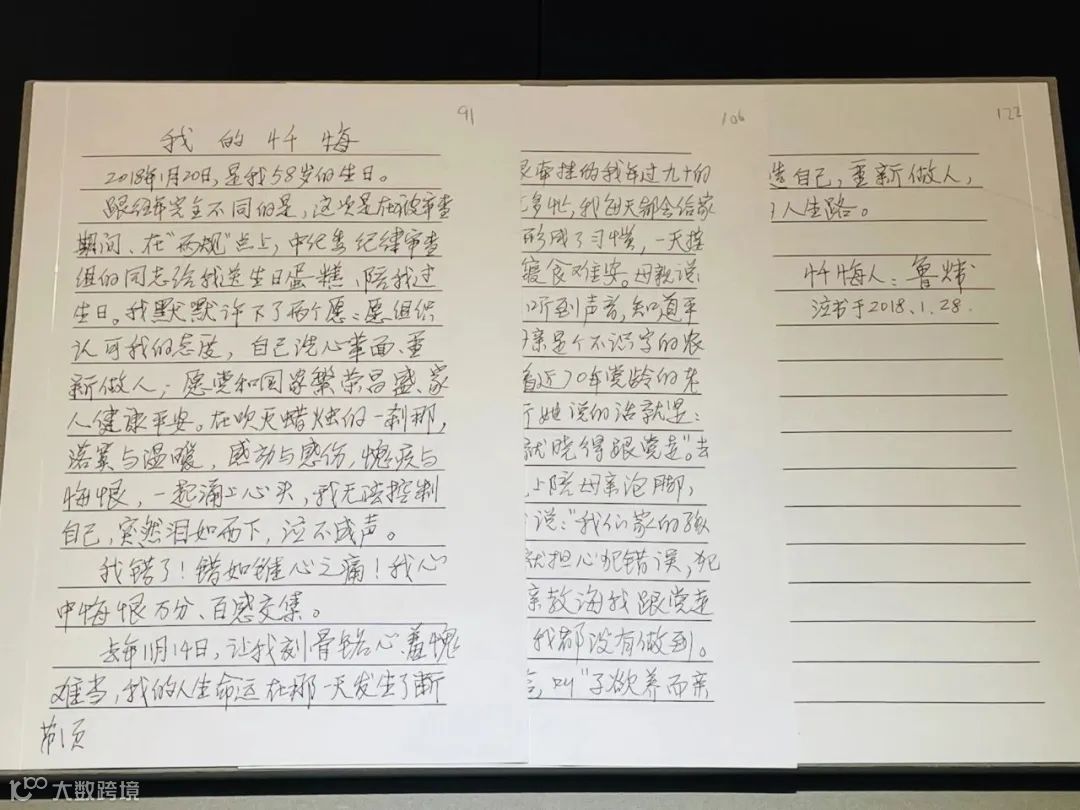 91
我的忏悔
2018年1月20日,是我58岁的生日。
跟经年完全不同的是,这次是在被审查
期间、在"两规"点上,中纪委纪律审查
组的同志给我送生日蛋糕、陪我过
生日。我默默许下了两个愿:愿组织
认可我的态度,自己洗心革面、重
新做人;愿党和国家繁荣昌盛、家
人健康平安。在吹灭蜡烛的一刹那,
落寞与温暖,感动与感伤,愧疚与
悔恨,一起涌上心头,我无法控制
自己,突然泪如雨下,泣不成声。
我错了!错如锥心之痛!我心
中悔恨万分、百感交集。
去年11月14日,让我刻骨铭心、羞愧
难当,我的人生命运在那一天发生了断
第1页
106
牵挂的我年过九十的
多忙,我每天都会给家
形成了习惯,一天接
寝食难安。母亲说
听到声音,知道平
亲是个不识字的农
着近70年党龄的老
她说的话就是:
就晓得跟党走。"去
上陪母亲泡脚,
说:"我们家的孩
就担心犯错误,犯
亲教诲我跟党走
我都没有做到。
叫"子欲养而亲
122
造自己,重新做人,
人生路。
忏悔人:鲁炜
泣书于2018.1.28.
大数跨境